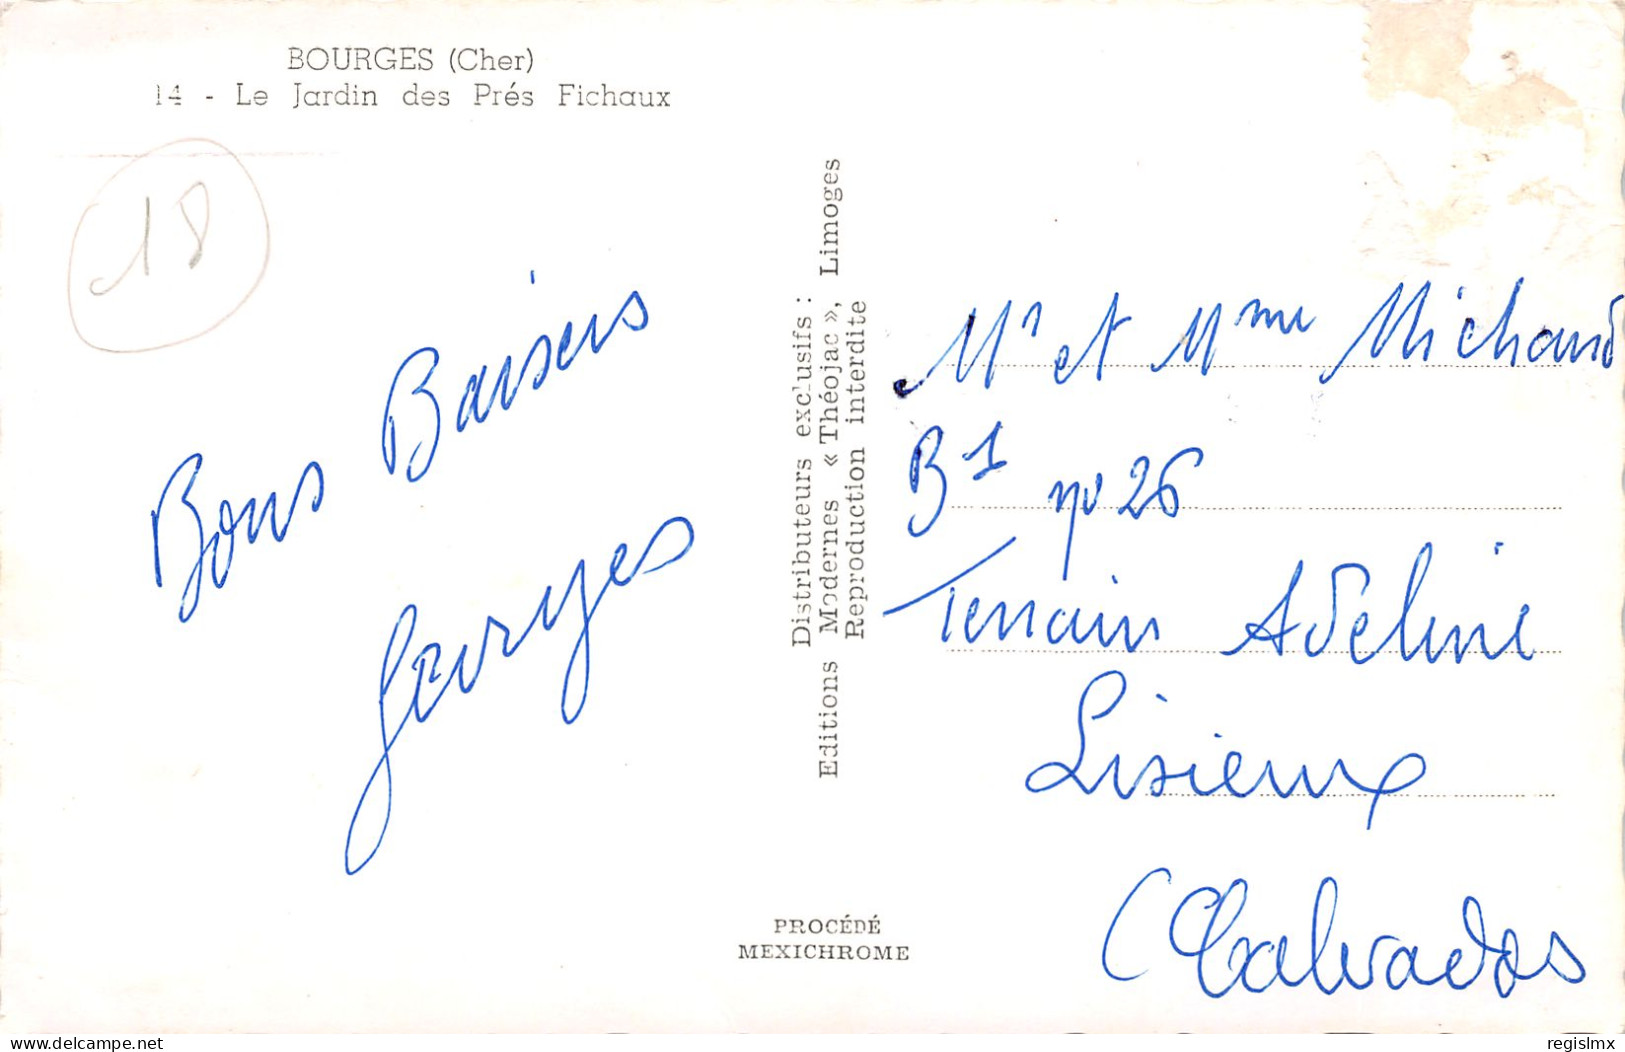 BOURGES (Cher)
14 - Le Jardin des Prés Fichaux
18
Bons Baisers
Georges
Distributeurs exclusifs :
Editions Modernes « Théojac », Limoges
Reproduction interdite
PROCÉDÉ
MEXICHROME
Mr et Mme Michaud
Bt no 26
Terrain Adeline
Lisieux
(Calvados
delcampe.net
regislmx